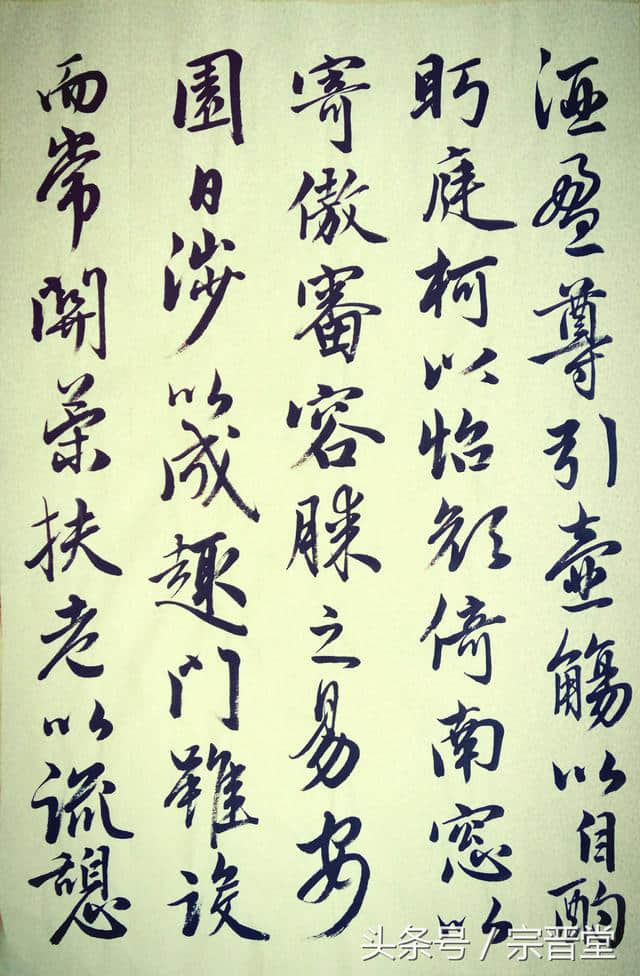 酒盈尊引壺觴以自酌
眄庭柯以怡顏倚南窓以
寄傲審容膝之易安
園日涉以成趣門雖設
而常關策扶老以流憩
头条号 / 宗晋堂